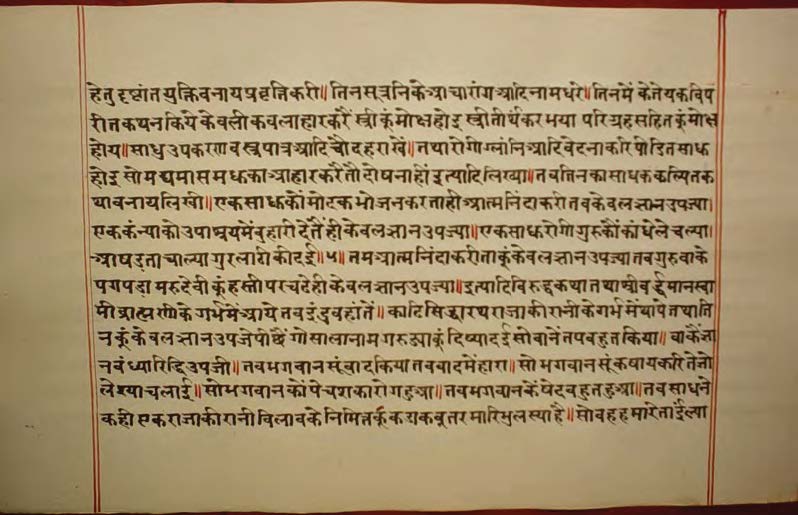 हेतु दृष्टांत युक्ति बनाय प्रवृत्ति करी॥ तिन सूत्रनि के आचारांग आदि नाम धरे॥ तिनमें केतेयक विप
रीत कथन किये केवली कवलाहार करैं स्त्री कूं मोक्ष होइ स्त्री तीर्थंकर भया परिग्रह सहित कूं मोक्ष
होय॥ साधु उपकरण वस्त्र पात्र आदि चौदह राखें॥ तथा रोगी ग्लांनि आदि वेदना करि पीडित साध
होइ सो मद्य मास मधु का आहार करै तौ दोष नाहीं इत्यादि लिख्या॥ तब तिनका साधक कल्पित क
था बनाय लिखी॥ एक साध कों मोदक भोजन करता ही आत्मनिंदा करी तब केवलज्ञान उपज्या।
एक कंन्या को उपाश्रय में वुहारी देतैं ही केवलज्ञान उपज्या॥ एक साध रोगी गुरु कौं कांधे ले चल्या।
आषडता चाल्या गुर लारी की दई॥५॥ तम आत्मनिंदा करी ताकूं केवलज्ञान उपज्या तब गुरु वाके
पग पड़ा मरुदेवी कूं हस्ती पर चढे ही केवलज्ञान उपज्या॥ इत्यादि विरुद्ध कथा तथा श्रीवर्द्धमान स्वा
मी ब्राह्मणी के गर्भ में आये तब इंद्र वहां तें॥ काढि सिद्धारथ राजा की रानी के गर्भ में थापे तथा ति
न कूं केवलज्ञान उपजे पीछैं गोसाला नाम गरुड्या कूं दिष्या दई सो वाने तप बहुत किया॥ वाकै ज्ञा
न वंध्या रिद्धि उपजी॥ तब भगवान सूं वाद किया तब वाद में हारा॥ सो भगवान सूं कषाय करि तेजो
लेश्या चलाई॥ सो भगवान कों पेचश का रोग हुआ॥ तब भगवान कें षेद बहुत हुआ॥ तब साध ने
कही एक राजा की रानी विलाव के निमित्त कूकय कबूतर मारि भुलस्या है॥ सो वह हमारे ताईं ल्या